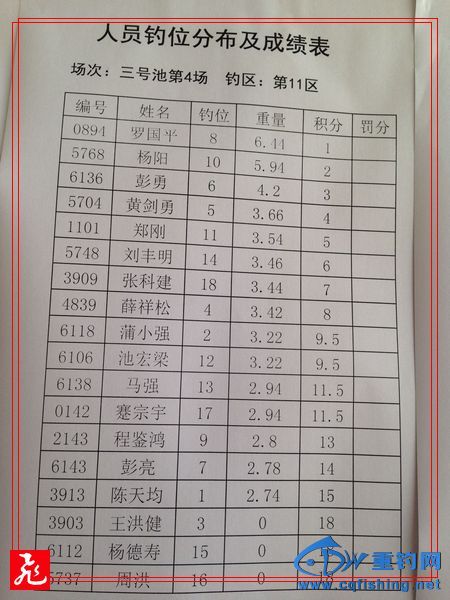 人员钓位分布及成绩表
场次：三号池第4场 钓区：第11区
编号 姓名 钓位 重量 积分 罚分
0894 罗国平 8 6.44 1
5768 杨阳 10 5.94 2
6136 彭勇 6 4.2 3
5704 黄剑勇 5 3.66 4
1101 郑刚 11 3.54 5
5748 刘丰明 14 3.46 6
3909 张科建 18 3.44 7
4839 薛祥松 4 3.42 8
6118 蒲小强 2 3.22 9.5
6106 池宏梁 12 3.22 9.5
6138 马强 13 2.94 11.5
0142 蹇宗宇 17 2.94 11.5
2143 程鉴鸿 9 2.8 13
6143 彭亮 7 2.78 14
3913 陈天均 1 2.74 15
3903 王洪健 3 0 18
6112 杨德寿 15 0
5737 周洪 16 0
重钓网
www.cqfishing.net